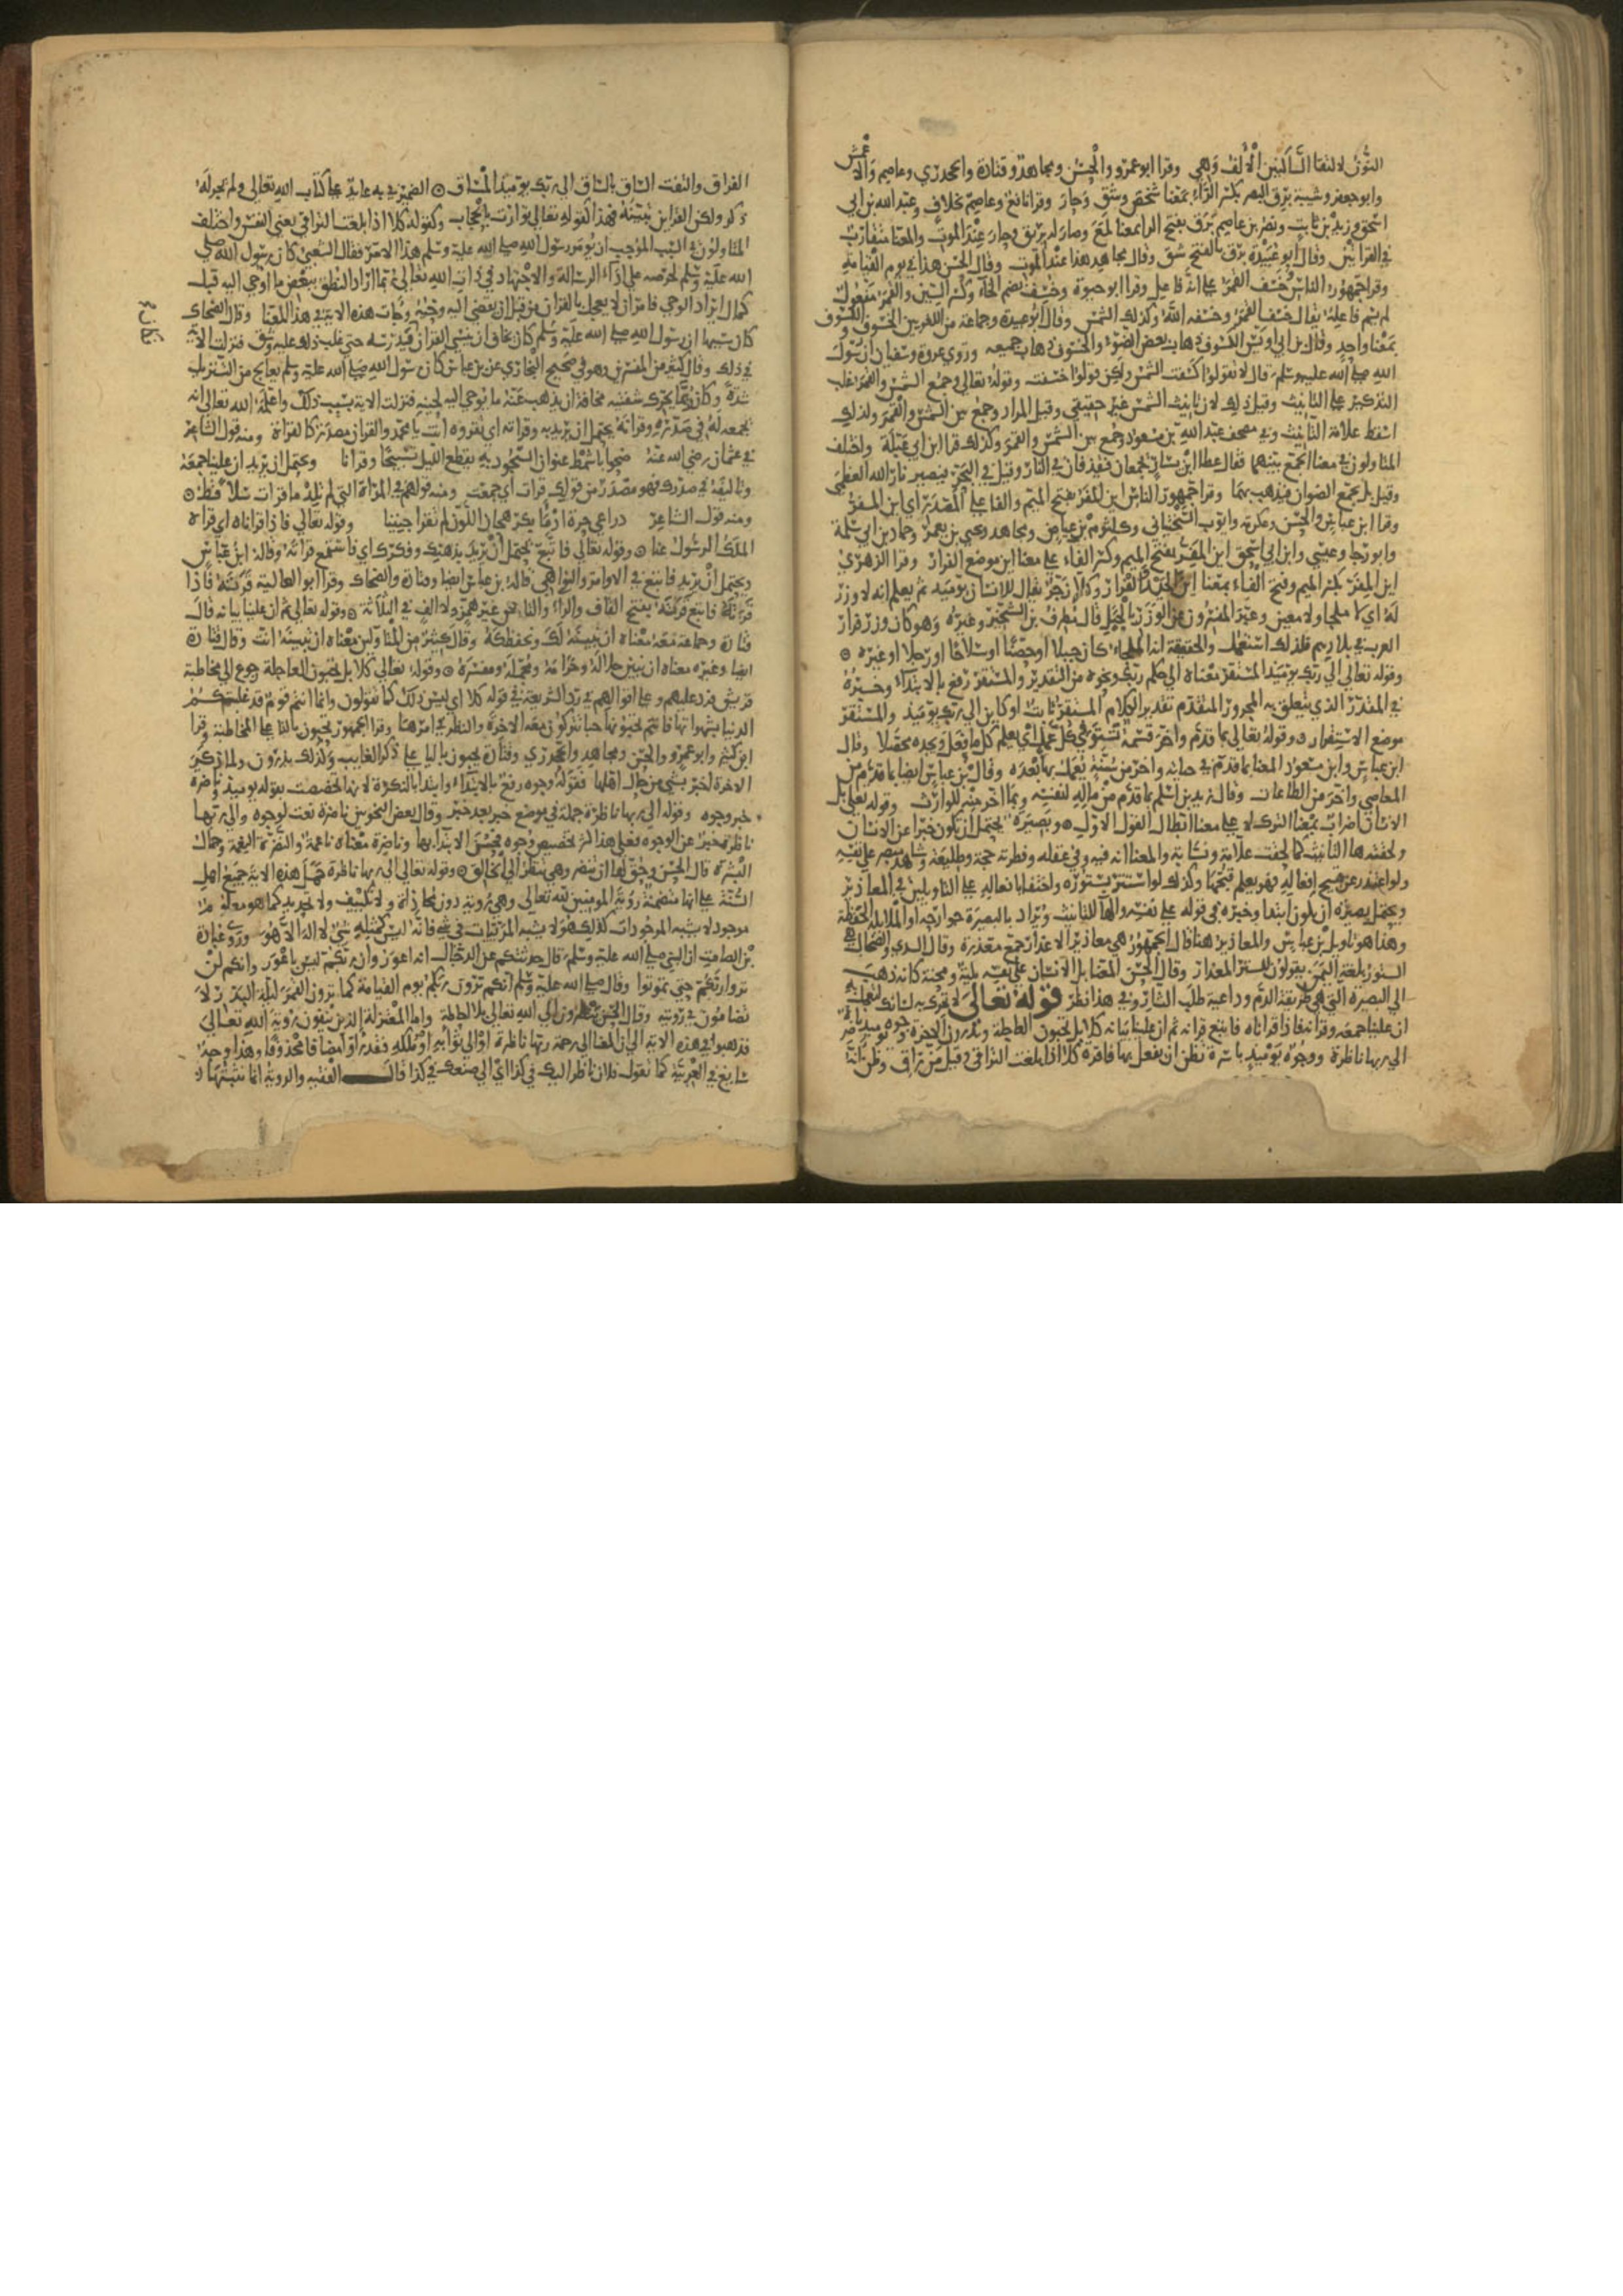 النون لالتقا الساكنين الالف وهي وقرا ابو عمرو والحسن ومجاهد وقتادة والجحدري وعاصم والاعمش
وابو جعفر وشيبة برق البصر بكسر الراء بمعنا شخص وشق وحار وقرا نافع وعاصم بخلاف وعبد الله بن ابي
اسحق وزيد بن ثابت ونصر بن عاصم برق بفتح الرا معنا لمع وصار له بريق وحار عند الموت والمعنا متقارب
في القرأتين وقال ابو عبيدة برق بالفتح شق وقال مجاهد هذا عند الموت وقال الحسن هذا في يوم القيامة
وقرا جمهور الناس خسف القمر على انه فاعل وقرا ابو حيوة وخسف بضم الخاء وكسر السين والقمر مفعول
لم يسم فاعله يقال خسف القمر وخسفه الله وكذلك الشمس وقال ابو عبيدة وجماعة من اللغويين الخسوف والكسوف
بمعنا واحد وقال بن ابي اويس الكسوف ذهاب بعض الضوء والخسوف ذهاب جميعه وروي عروة وسفيان ان رسول
الله صلى الله عليه وسلم قال لا تقولوا كسفت الشمس ولكن قولوا خسفت وقوله تعالى وجمع الشمس والقمر غلب
التذكير على التانيث وقيل ذلك لان تانيث الشمس غير حقيقي وقيل المراد وجمع بين الشمس والقمر ولذلك
اسقط علامة التانيث وفي مصحف عبد الله بن مسعود وجمع بين الشمس والقمر وكذلك قرا ابن ابي عبلة واختلف
المتاولون في معنا الجمع بينهما فقال عطا بن يسار يجمعان فيقذفان في النار وقيل في البحر فيصير نار الله العظمى
وقيل بل يجمع الضوان فيذهب بهما وقرا جمهور الناس اين المفر بفتح الميم والفا على المصدر اي اين الفرار
وقرا ابن عباس والحسن وعكرمة وايوب السختياني وكلثوم بن عياض ومجاهد ويحيى بن يعمر وحماد بن ابي سلمة
وابو رجا وعيسى وابن ابي اسحق اين المفر بفتح الميم وكسر الفاء على معنا اين موضع الفرار وقرا الزهري
اين المفر بكسر الميم وفتح الفاء بمعنا اين الجيد الفرار وكلا زجر يقال للانسان يومئذ ثم يعلم انه لا وزر
له اي لا ملجا ولا معين وعبر المفسرون عن الوزر بالجبل قال مطرف بن الشخير وغيره وهو كان وزر فرار
العرب في بلادهم فلذلك استعمل والحقيقة انه الملجا كان جبلا او حصنا او سلاحا او رجلا او غيره
وقوله تعالى الى ربك يومئذ المستقر معناه الى حكم ربك ونحوه من التقدير والمستقر رفع بالابتداء وخبره
في المقدر الذي يتعلق به المجرور المتقدم تقدير الكلام المستقر ثابت او كاين الى ربك يومئذ والمستقر
موضع الاستقرار وقوله تعالى بما قدم واخر قسمة تستوفي كل عمل اي يعلم كل ما فعل ويجده محصلا وقال
ابن عباس وابن مسعود المعنا بما قدم في حياته واخر من سنة يعمل بها بعده وقال بن عباس ايضا بما قدم من
المعاصي واخر من الطاعات وقال زيد بن اسلم بما قدم من ماله لنفسه وبما اخر منه للوارث وقوله تعالى بل
الانسان اضراب بمعنا الترك لا على معنا ابطال القول الاول وبصيرة يحتمل ان يكون خبرا عن الانسان
ولحقته ها التانيث كما لحقت علامة ونسابة والمعنا انه فيه وفي عقله وفطرته حجة وطليعة وشاهد مبصر على نفسه
ولو اعتذر عن قبيح افعاله فهو يعلم قبحها وكذلك لو استتر بستوره واختفا بافعاله على التاويلين في المعاذير
ويحتمل بصيرة ان يكون ابتدا وخبره في قوله على نفسه والها للتانيث ويراد بالبصيرة جوارحه او الملايكة الحفظة
وهذا هو تاويل بن عباس والمعاذير هنا قال الجمهور هي معاذير الاعذار جمع معذرة وقال السدي والضحاك هي
الستور بلغة اليمن يقولون للستر المعذار وقال الحسن المعنا بل الانسان على نفسه بلية ومحنة كانه ذهب
الى البصيرة التي هي طريقة الدم وداعية طلب الثار وفي هذا نظر قوله تعالى لا تحرك به لسانك لتعجل به
ان علينا جمعه وقرانه فاذا قراناه فاتبع قرانه ثم ان علينا بيانه كلا بل تحبون العاجلة وتذرون الاخرة وجوه يومئذ ناضرة
الى ربها ناظرة ووجوه يومئذ باسرة تظن ان يفعل بها فاقرة كلا اذا بلغت التراقي وقيل من راق وظن انه
الفراق والتفت الساق بالساق الى ربك يومئذ المساق الضمير في به عايد على كتاب الله تعالى ولم يجر له
ذكر ولكن القراين تبينه فهذا كقوله تعالى توارت بالحجاب وكقوله كلا اذا بلغت التراقي يعني النفس واختلف
المتاولون في السبب الموجب ان يومر رسول الله صلى الله عليه وسلم هذا الامر فقال الشعبي كان رسول الله صلى
الله عليه وسلم لحرصه على اداء الرسالة والاجتهاد في ذات الله تعالى ربما اراد النطق ببعض ما اوحي اليه قبل
كمال ايراد الوحي فامر ان لا يعجل بالقران من قبل ان يقضى اليه وحيه وجات هذه الاية في هذا المعنا وقال الضحاك
كان سببها ان رسول الله صلى الله عليه وسلم كان يخاف ان ينسى القران فكان يدرسه حتى غلب ذلك عليه وشق فنزلت الاية
في ذلك وقال كثير من المفسرين وهو في صحيح البخاري عن بن عباس كان رسول الله صلى الله عليه وسلم يعالج من التنزيل
شدة وكان مما يحرك شفتيه مخافة ان يذهب عنه ما يوحي اليه لحينه فنزلت الاية بسبب ذلك واعلمه الله تعالى انه
يجمعه له في صدره وقرانه يحتمل ان يريد به وقرانه اي تقروه انت يا محمد والقران مصدر كالقراة ومنه قول الشاعر
في عثمان رضي الله عنه ضحوا باشمط عنوان السجود به يقطع الليل تسبيحا وقرانا ويحتمل ان يريد ان علينا جمعه
وتاليفه في صدرك فهو مصدر من قولك قرات اي جمعت ومنه قولهم في المراة التي لم تلد ما قرات سلا قط
ومنه قول الشاعر ذراعي حرة ادما بكر هجان اللون لم تقرا جنينا وقوله تعالى فاذا قراناه اي قراه
الملك الرسول عنا وقوله تعالى فاتبع يحتمل ان يريد بذهنك وفكرك اي فاستمع قرانه وقاله ابن عباس
ويحتمل ان يريد فاتبع في الاوامر والنواهي قاله بن عباس ايضا وقتادة والضحاك وقرا ابو العالية قرته فاذا
قرته فاتبع قرته بفتح القاف والراء والتا من غير همز ولا الف في الثلاثة وقوله تعالى ثم ان علينا بيانه قال
قتادة وجماعة معه معناه ان نبينه لك ونحفظكه وقال كثير من المتاولين معناه ان تبينه انت وقال قتادة
ايضا وغيره معناه ان نبين حلاله وحرامه ومجمله ومفسره وقوله تعالى كلا بل تحبون العاجلة رجوع الى مخاطبة
قريش فرد عليهم وعلى اقوالهم في رد الشريعة في قوله كلا اي ليس ذلك كما تقولون وانما انتم قوم قد غلبتكم
الدنيا بشهواتها فانتم تحبونها حبا تتركون معه الاخرة والنظر في امرها وقرا الجمهور تحبون بالتا على المخاطبة وقرا
ابن كثير وابو عمرو والحسن ومجاهد والجحدري وقتادة يحبون باليا على ذكر الغايب وكذلك يذرون ولما ذكر
الاخرة اخبر بشي من حال اهلها فقوله وجوه رفع بالابتداء وابتدا بالنكرة لانها تخصصت بقوله يومئذ وناضرة
خبر وجوه وقوله الى ربها ناظرة جملة في موضع خبر بعد خبر وقال بعض النحويين ناضرة نعت لوجوه والى ربها
ناظرة خبر عن الوجوه فعلى هذا كثر تخصيص وجوه فحسن الابتدا بها وناضرة معناه ناعمة والنضرة النعمة وجمال
البشرة قال الحسن وحق لها ان تنضر وهي تنظر الى الخالق وقوله تعالى الى ربها ناظرة حمل هذه الاية جميع اهل
السنة على انها متضمنة روية المومنين لله تعالى وهي روية دون محاذاة ولا تكييف ولا تحديد كما هو معلوم
موجود لا يشبه الموجودات كذلك هو لا يشبه المرئيات في شي فانه ليس كمثله شي لا اله الا هو وروى عبادة
بن الصامت ان النبي صلى الله عليه وسلم قال حدثتكم عن الدجال انه اعور وان ربكم ليس باعور وانكم لن
تروا ربكم حتى تموتوا وقال صلى الله عليه وسلم انكم ترون ربكم يوم القيامة كما ترون القمر ليلة البدر لا
تضامون في رويته وقال الحسن ينظرون الى الله تعالى بلا احاطة واما المعتزلة الذين ينفون روية الله تعالى
فذهبوا في هذه الاية الى ان المعنا الى رحمة ربها ناظرة او الى ثوابه او ملكه فقدروا مضافا محذوفا وهذا وجه
سايغ في العربية كما تقول فلان ناظر اليك في كذا اي الى صنعك في كذا قال الفقيه والروية انما نثبتها